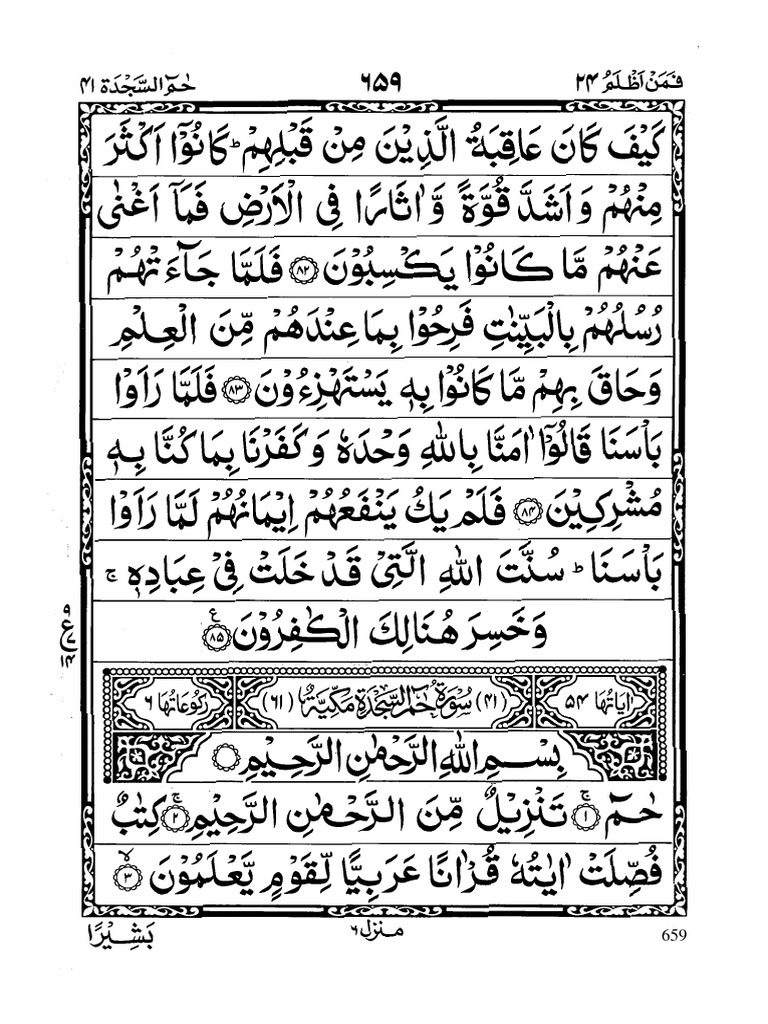 فَمَنْ اَظْلَمُ ۲۴
۶۵۹
حٰمٓ السَّجْدَة ۴۱
كَيْفَ كَانَ عَاقِبَةُ الَّذِيْنَ مِنْ قَبْلِهِمْؕ كَانُوْۤا اَكْثَرَ
مِنْهُمْ وَاَشَدَّ قُوَّةً وَّاٰثَارًا فِى الْاَرْضِ فَمَاۤ اَغْنٰى
عَنْهُمْ مَّا كَانُوْا يَكْسِبُوْنَ ﴿۸۲﴾ فَلَمَّا جَآءَتْهُمْ
رُسُلُهُمْ بِالْبَيِّنٰتِ فَرِحُوْا بِمَا عِنْدَهُمْ مِّنَ الْعِلْمِ
وَحَاقَ بِهِمْ مَّا كَانُوْا بِهٖ يَسْتَهْزِءُوْنَ ﴿۸۳﴾ فَلَمَّا رَاَوْا
بَاْسَنَا قَالُوْۤا اٰمَنَّا بِاللّٰهِ وَحْدَهٗ وَكَفَرْنَا بِمَا كُنَّا بِهٖ
مُشْرِكِيْنَ ﴿۸۴﴾ فَلَمْ يَكُ يَنْفَعُهُمْ اِيْمَانُهُمْ لَمَّا رَاَوْا
بَاْسَنَاؕ سُنَّتَ اللّٰهِ الَّتِىْ قَدْ خَلَتْ فِىْ عِبَادِهٖۚ
وَخَسِرَ هُنَالِكَ الْكٰفِرُوْنَ ﴿۸۵﴾ ع
۹ ع ۷ ۱۴
اٰيَاتُهَا ۵۴
(۴۱) سُوْرَةُ حٰمٓ السَّجْدَةِ مَكِّيَّةٌ (۶۱)
رُكُوْعَاتُهَا ۶
بِسْمِ اللّٰهِ الرَّحْمٰنِ الرَّحِيْمِ
حٰمٓ ﴿۱﴾ۚ تَنْزِيْلٌ مِّنَ الرَّحْمٰنِ الرَّحِيْمِ ﴿۲﴾ۚ كِتٰبٌ
فُصِّلَتْ اٰيٰتُهٗ قُرْاٰنًا عَرَبِيًّا لِّقَوْمٍ يَّعْلَمُوْنَ ﴿۳﴾ۙ
بَشِيْرًا
منزل ۶
659